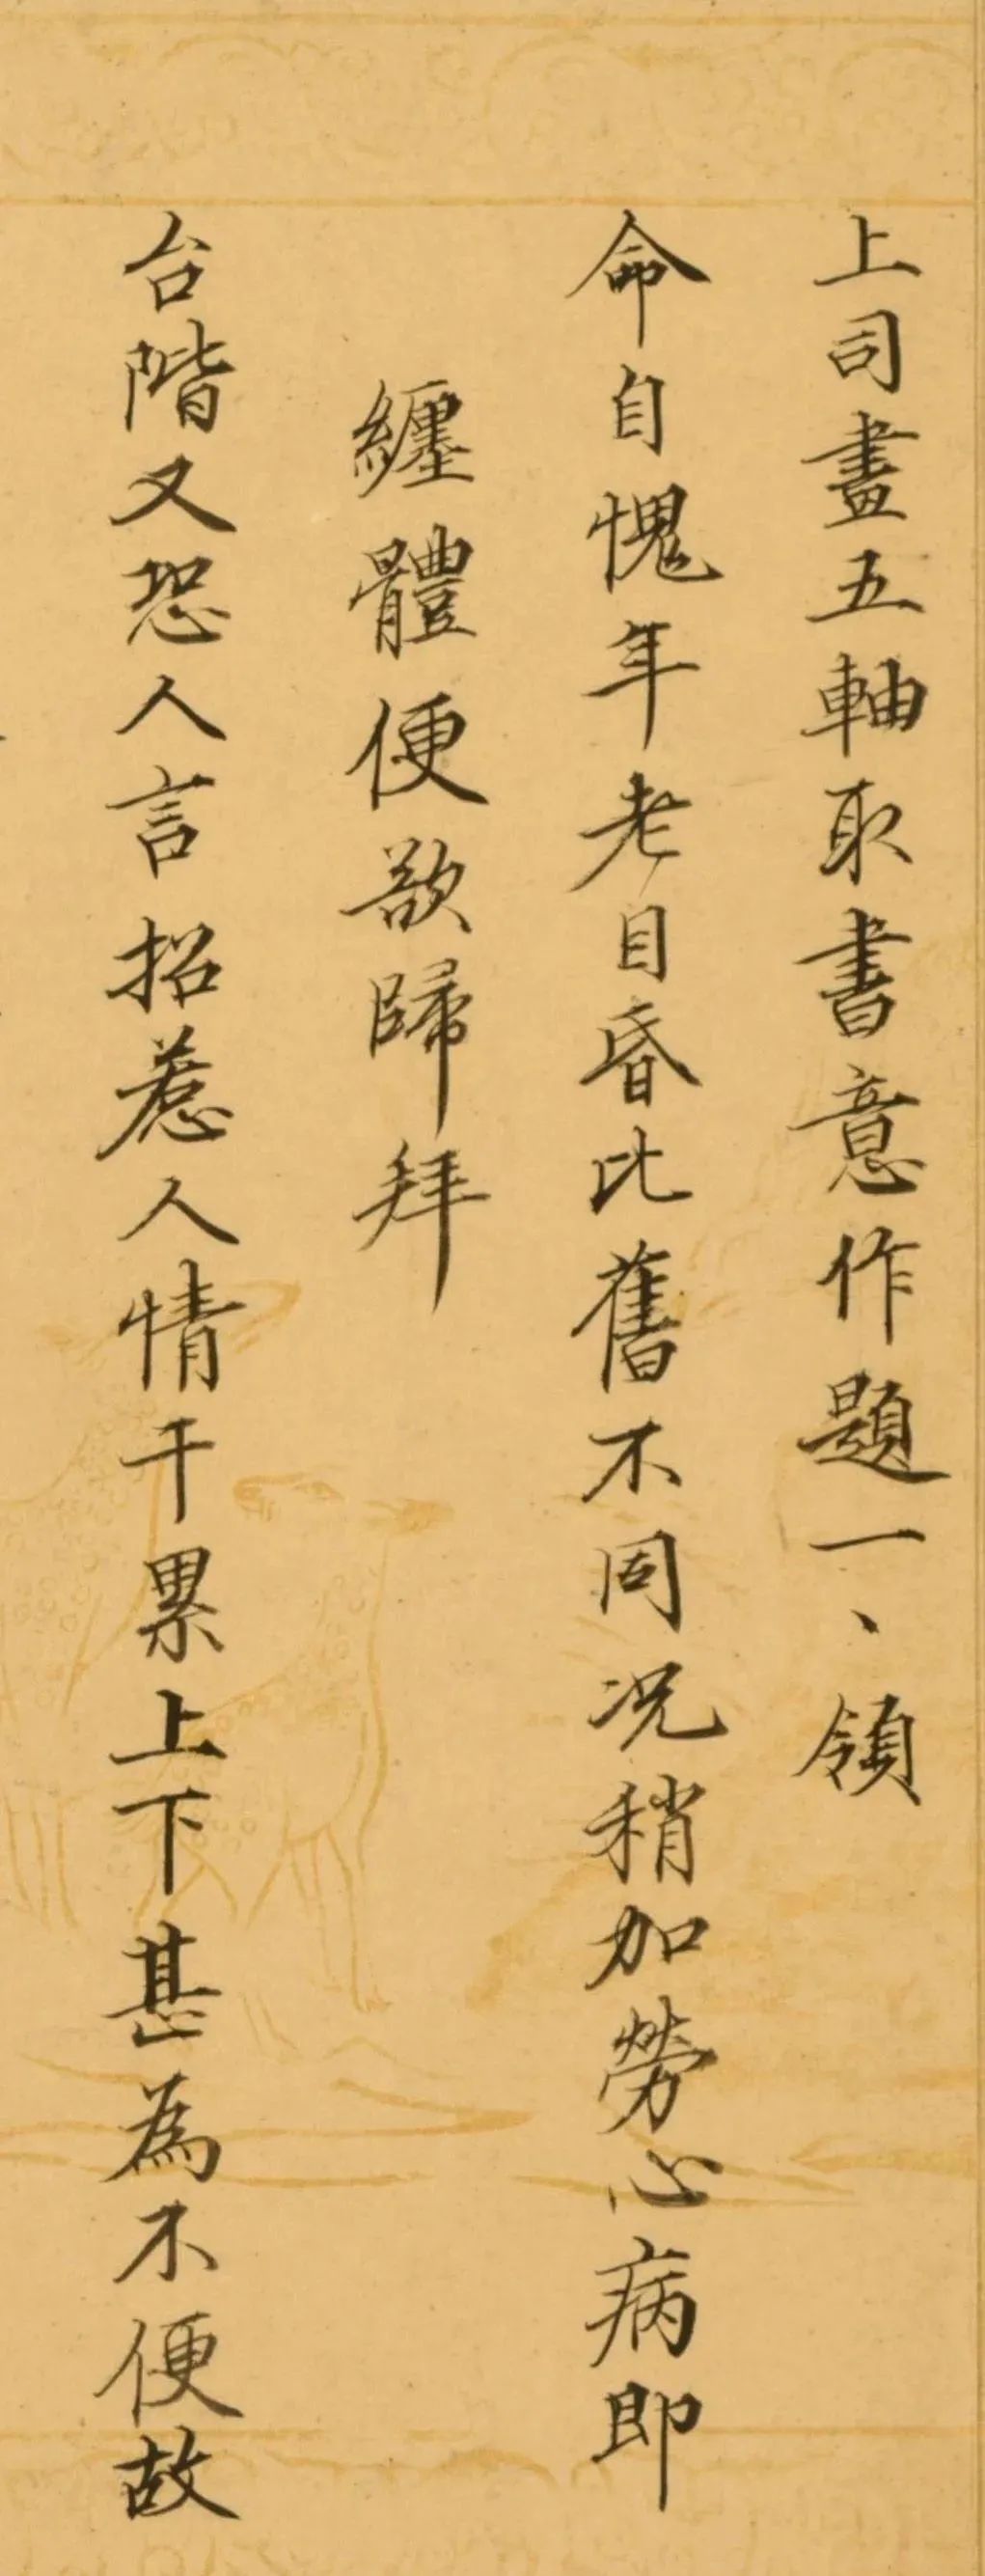 上司畫五軸取書意作題一、領
命自愧年老目昏比舊不同况稍加勞心病即
纏體便欲歸拜
台階又恐人言招惹人情干累上下甚為不便故